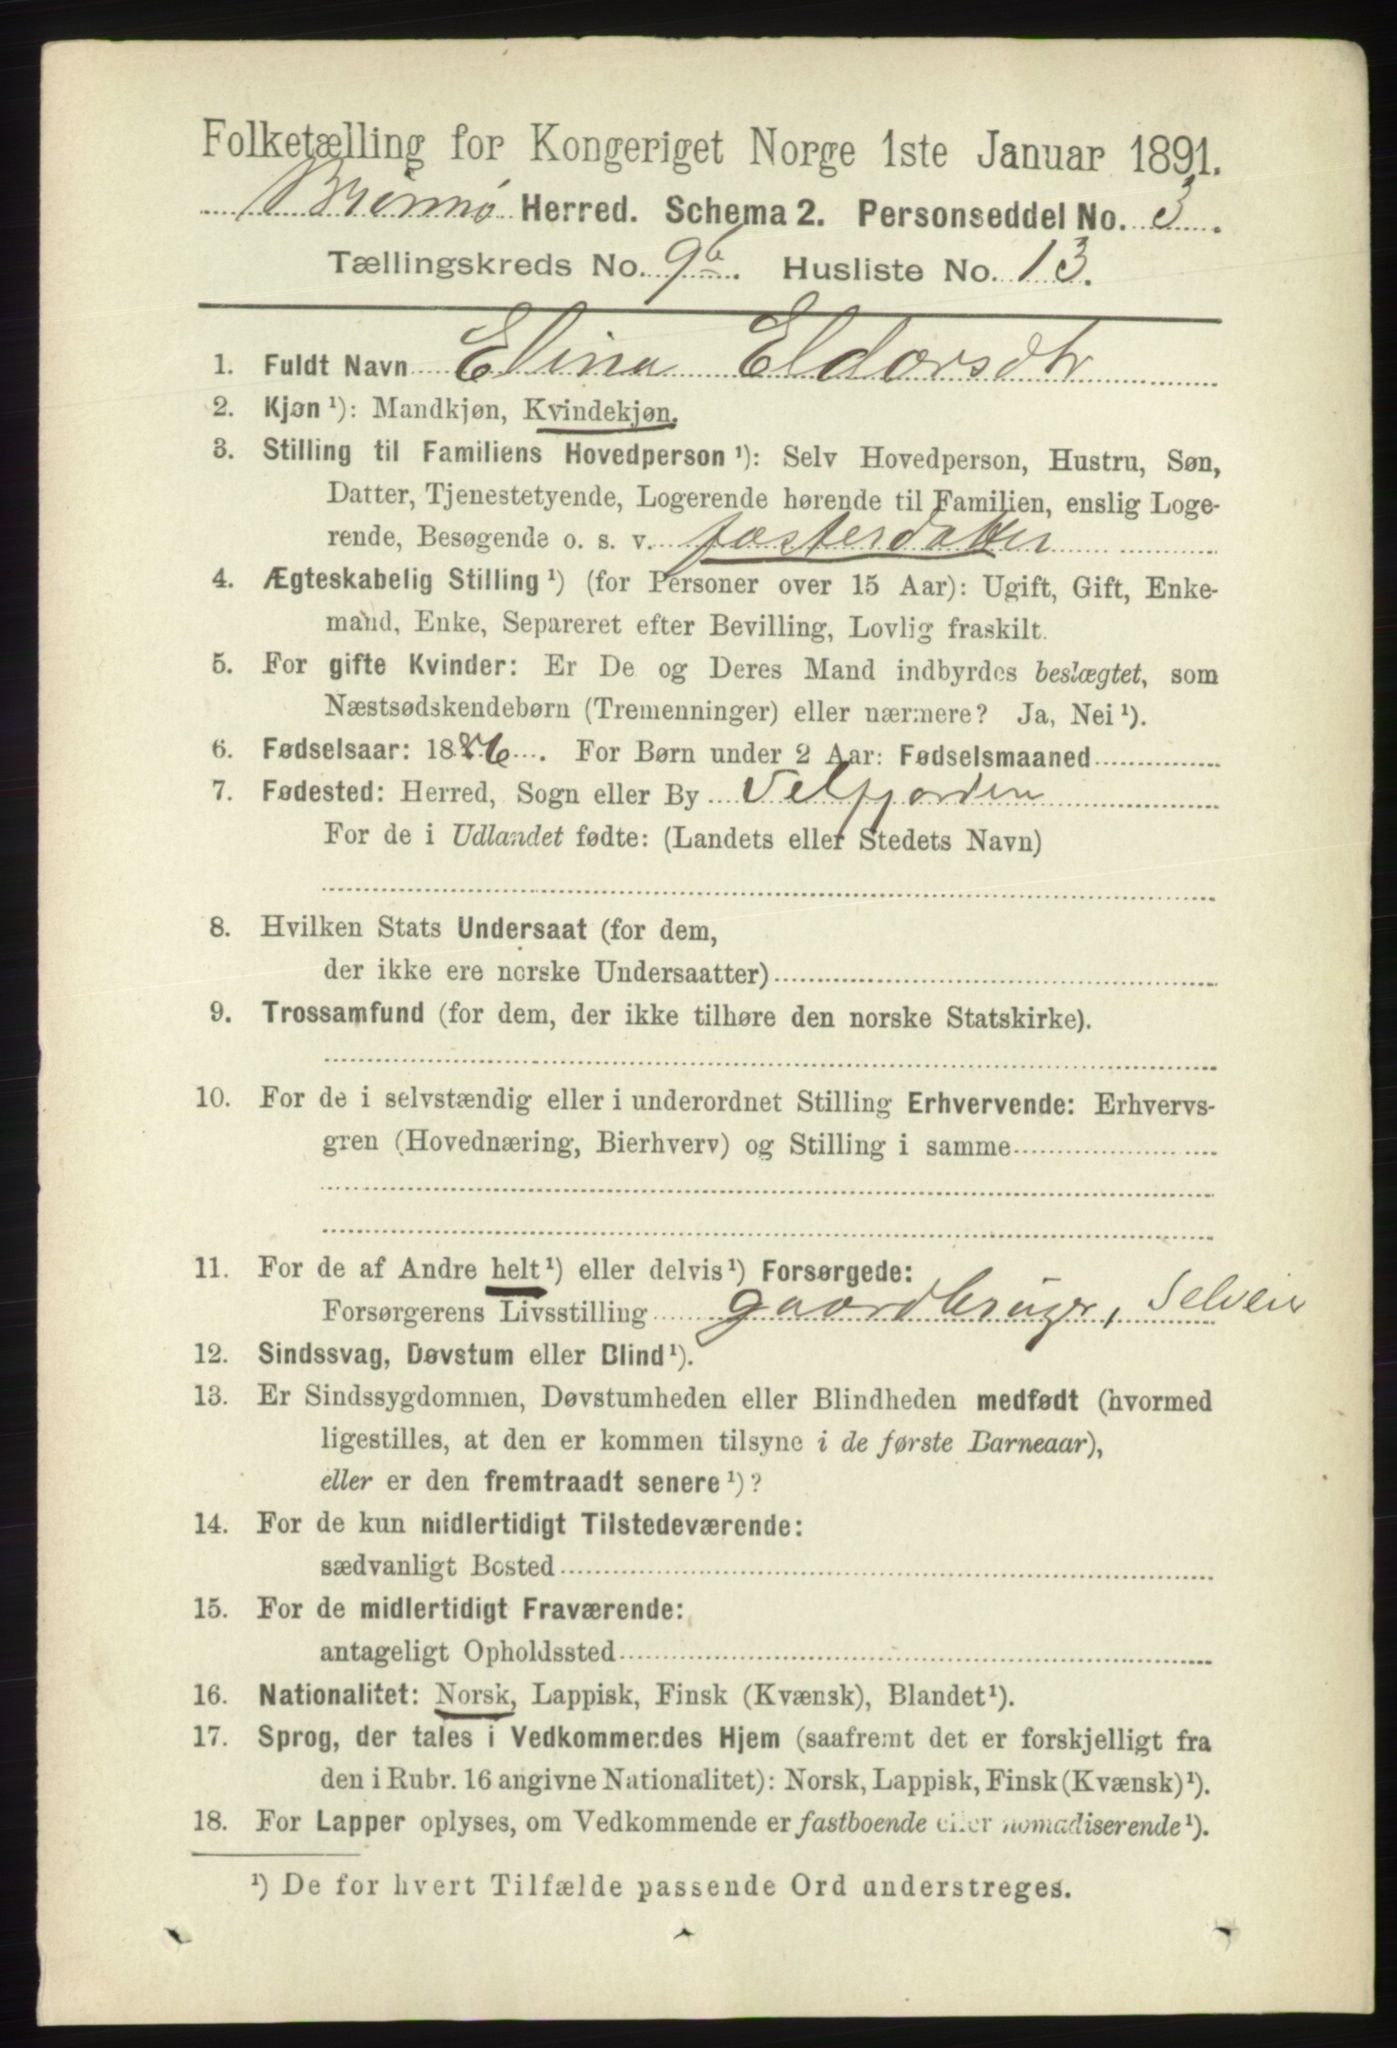 Folketælling for Kongeriget Norge 1ste Januar 1891.
Brønnø Herred. Schema 2. Personseddel No. 3.
Tællingskreds No. 9b. Husliste No. 13.
1. Fuldt Navn Elina Eldorsdtr
2. Kjøn ¹): Mandkjøn, Kvindekjøn.
3. Stilling til Familiens Hovedperson ¹): Selv Hovedperson, Hustru, Søn,
Datter, Tjenestetyende, Logerende hørende til Familien, enslig Loge-
rende, Besøgende o. s. v. fosterdatter
4. Ægteskabelig Stilling ¹) (for Personer over 15 Aar): Ugift, Gift, Enke-
mand, Enke, Separeret efter Bevilling, Lovlig fraskilt.
5. For gifte Kvinder: Er De og Deres Mand indbyrdes beslægtet, som
Næstsødskendebørn (Tremenninger) eller nærmere? Ja, Nei ¹).
6. Fødselsaar: 1886. For Børn under 2 Aar: Fødselsmaaned
7. Fødested: Herred, Sogn eller By Velfjorden
For de i Udlandet fødte: (Landets eller Stedets Navn)
8. Hvilken Stats Undersaat (for dem,
der ikke ere norske Undersaatter)
9. Trossamfund (for dem, der ikke tilhøre den norske Statskirke).
10. For de i selvstændig eller i underordnet Stilling Erhvervende: Erhvervs-
gren (Hovednæring, Bierhverv) og Stilling i samme
11. For de af Andre helt ¹) eller delvis ¹) Forsørgede:
Forsørgerens Livsstilling gaardbruger, Selveier
12. Sindssvag, Døvstum eller Blind ¹).
13. Er Sindssygdommen, Døvstumheden eller Blindheden medfødt (hvormed
ligestilles, at den er kommen tilsyne i de første Barneaar),
eller er den fremtraadt senere ¹)?
14. For de kun midlertidigt Tilstedeværende:
sædvanligt Bosted
15. For de midlertidigt Fraværende:
antageligt Opholdssted
16. Nationalitet: Norsk, Lappisk, Finsk (Kvænsk), Blandet ¹).
17. Sprog, der tales i Vedkommendes Hjem (saafremt det er forskjelligt fra
den i Rubr. 16 angivne Nationalitet): Norsk, Lappisk, Finsk (Kvænsk) ¹).
18. For Lapper oplyses, om Vedkommende er fastboende eller nomadiserende ¹).
¹) De for hvert Tilfælde passende Ord understreges.